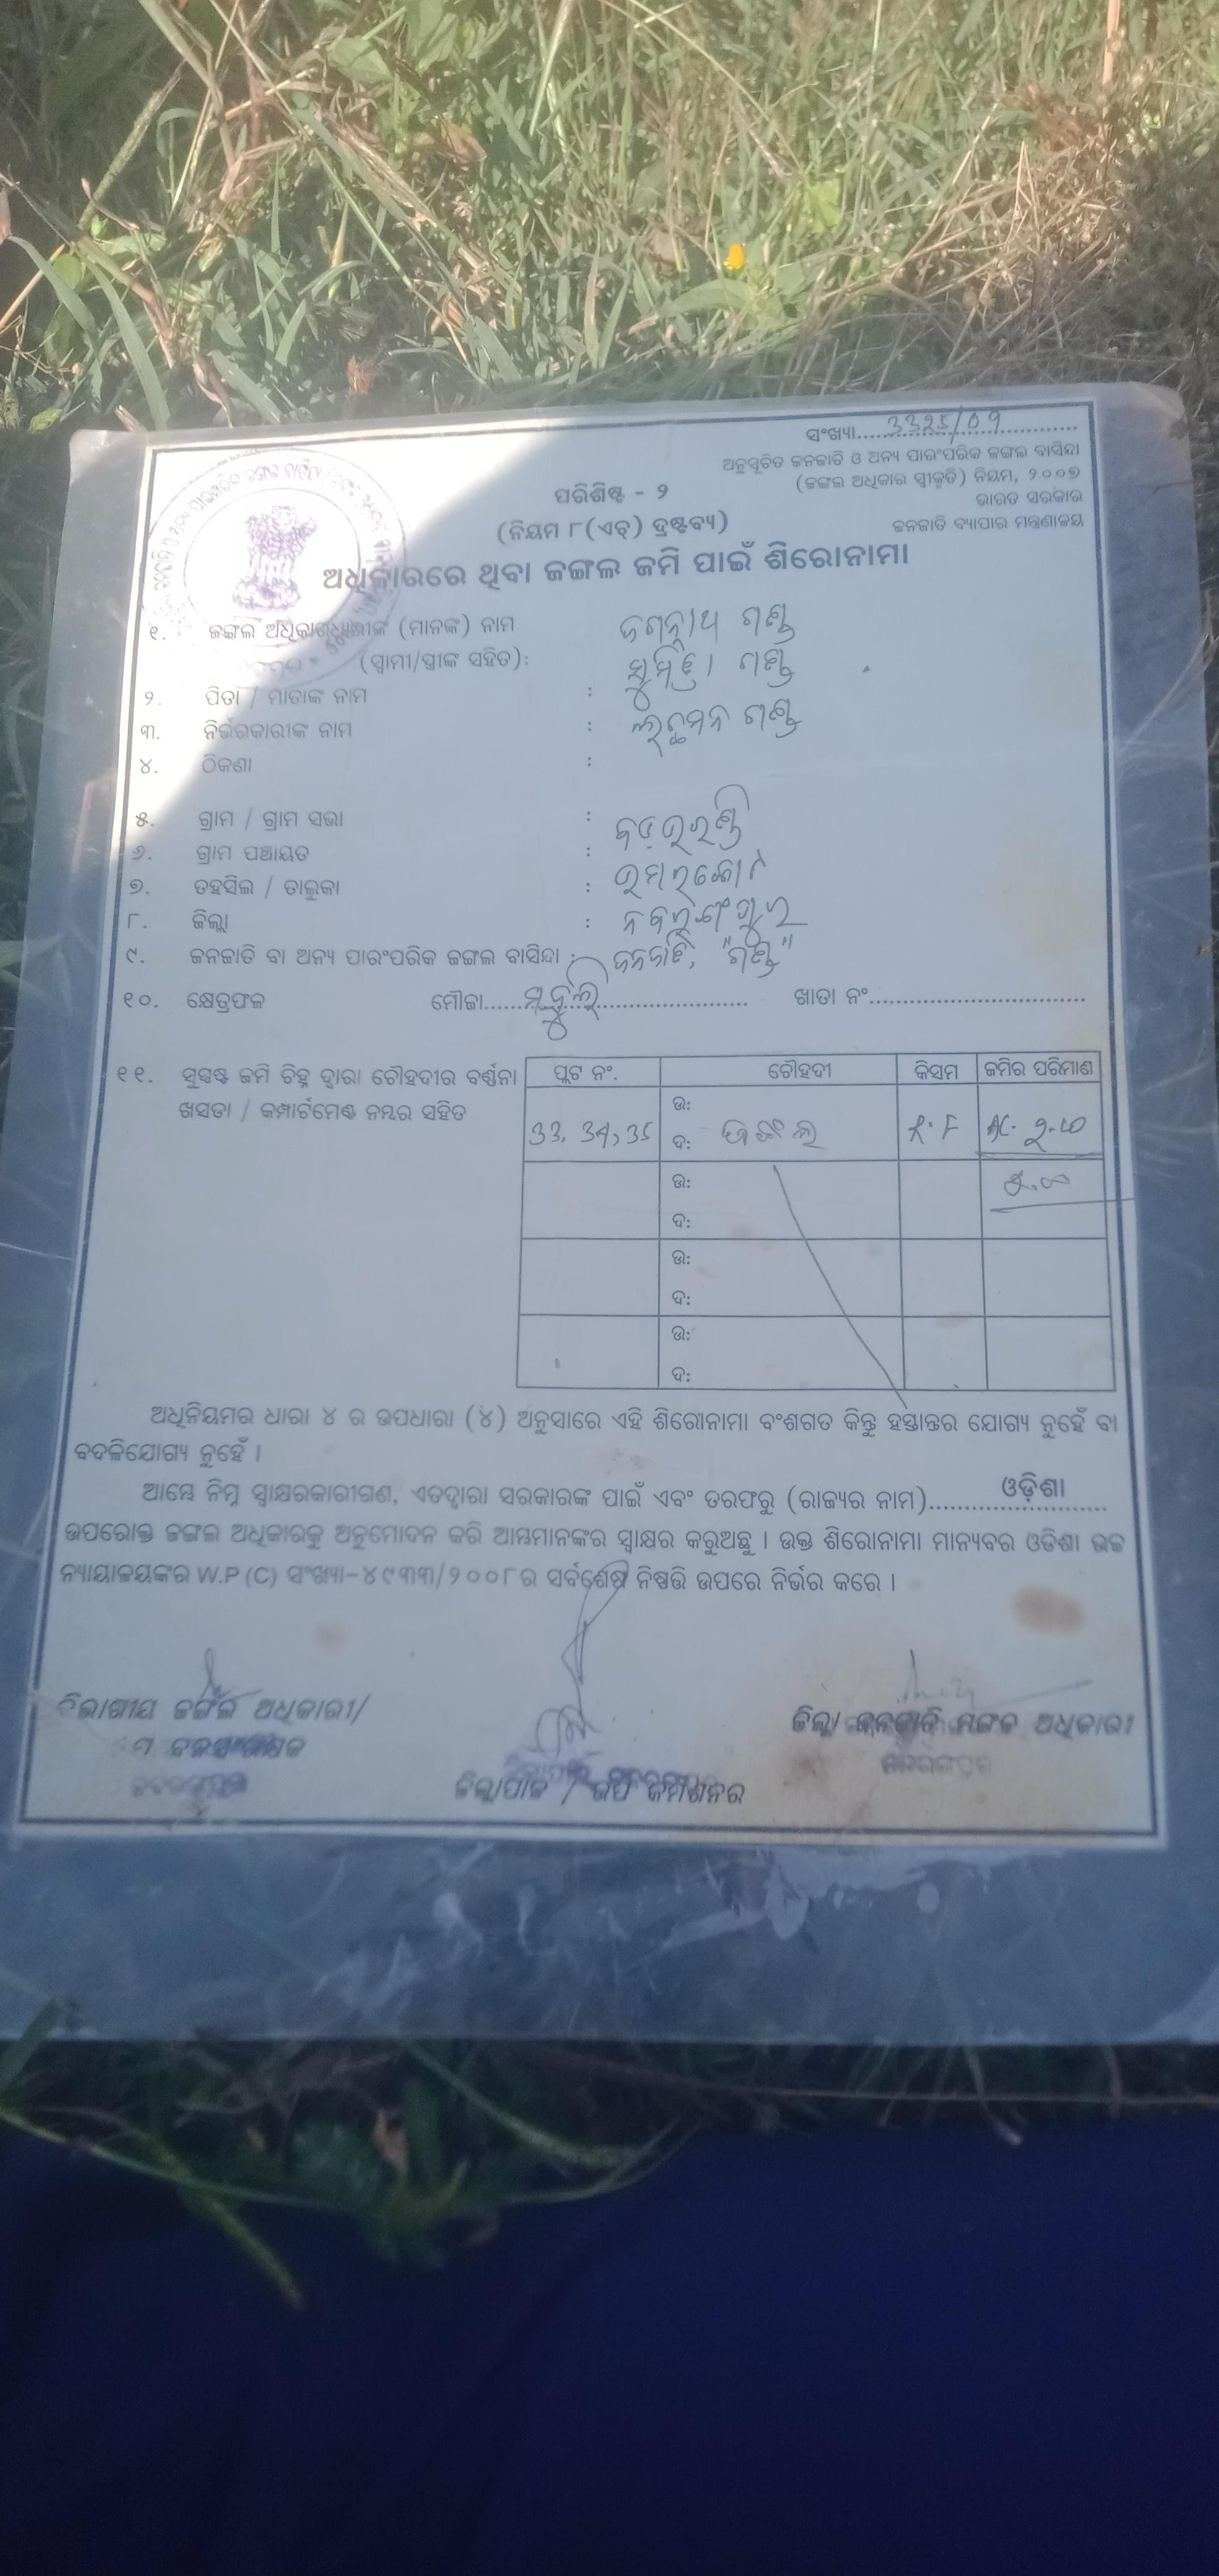 ସଂଖ୍ୟା..... 3325/09
ଅନୁସୂଚିତ ଜନଜାତି ଓ ଅନ୍ୟ ପାରଂପରିକ ଜଙ୍ଗଲ ବାସିନ୍ଦା
(ଜଙ୍ଗଲ ଅଧିକାର ସ୍ୱୀକୃତି) ନିୟମ, ୨୦୦୭
ଭାରତ ସରକାର
ଜନଜାତି ବ୍ୟାପାର ମନ୍ତ୍ରଣାଳୟ
ପରିଶିଷ୍ଟ - ୨
(ନିୟମ ୮(ଏଚ୍) ଦ୍ରଷ୍ଟବ୍ୟ)
ଅଧିକାରରେ ଥିବା ଜଙ୍ଗଲ ଜମି ପାଇଁ ଶିରୋନାମା
୧. ଜଙ୍ଗଲ ଅଧିକାରଧାରୀଙ୍କ (ମାନଙ୍କ) ନାମ ଜଗନ୍ନାଥ ଗଣ୍ଡ
(ସ୍ୱାମୀ/ସ୍ତ୍ରୀଙ୍କ ସହିତ): ସୁମିତ୍ରା ଗଣ୍ଡ
୨. ପିତା / ମାତାଙ୍କ ନାମ : ଲଛମନ ଗଣ୍ଡ
୩. ନିର୍ଭରକାରୀଙ୍କ ନାମ :
୪. ଠିକଣା :
୫. ଗ୍ରାମ / ଗ୍ରାମ ସଭା :
୬. ଗ୍ରାମ ପଞ୍ଚାୟତ :
୭. ତହସିଲ / ତାଲୁକା : ଉମରକୋଟ
୮. ଜିଲ୍ଲା : ନବରଂଗପୁର
୯. ଜନଜାତି ବା ଅନ୍ୟ ପାରଂପରିକ ଜଙ୍ଗଲ ବାସିନ୍ଦା : ଜନଜାତି, "ଗଣ୍ଡ"
୧୦. କ୍ଷେତ୍ରଫଳ ମୌଜା..... ଖାତା ନଂ.....
୧୧. ସୁସ୍ପଷ୍ଟ ଜମି ଚିହ୍ନ ଦ୍ୱାରା ଚୌହଦୀର ବର୍ଣ୍ଣନା
ଖସଡା / କମ୍ପାର୍ଟମେଣ୍ଟ ନମ୍ବର ସହିତ
ପ୍ଲଟ ନଂ. ଚୌହଦୀ କିସମ ଜମିର ପରିମାଣ
33, 34, 35 ଉ: ଦ: ଜଙ୍ଗଲ R.F AC.
ଉ:
ଦ:
ଉ:
ଦ:
ଉ:
ଦ:
ଅଧିନିୟମର ଧାରା ୪ ର ଉପଧାରା (୪) ଅନୁସାରେ ଏହି ଶିରୋନାମା ବଂଶଗତ କିନ୍ତୁ ହସ୍ତାନ୍ତର ଯୋଗ୍ୟ ନୁହେଁ ବା
ବଦଳିଯୋଗ୍ୟ ନୁହେଁ ।
ଆମ୍ଭେ ନିମ୍ନ ସ୍ୱାକ୍ଷରକାରୀଗଣ, ଏତଦ୍ୱାରା ସରକାରଙ୍କ ପାଇଁ ଏବଂ ତରଫରୁ (ରାଜ୍ୟର ନାମ)..... ଓଡ଼ିଶା
ଉପରୋକ୍ତ ଜଙ୍ଗଲ ଅଧିକାରକୁ ଅନୁମୋଦନ କରି ଆମ୍ଭମାନଙ୍କର ସ୍ୱାକ୍ଷର କରୁଅଛୁ । ଉକ୍ତ ଶିରୋନାମା ମାନ୍ୟବର ଓଡିଶା ଉଚ୍ଚ
ନ୍ୟାୟାଳୟଙ୍କର W.P (C) ସଂଖ୍ୟା-୪୯୩୩/୨୦୦୮ର ସର୍ବଶେଷ ନିଷ୍ପତ୍ତି ଉପରେ ନିର୍ଭର କରେ ।
ବିଭାଗୀୟ ଜଙ୍ଗଲ ଅଧିକାରୀ/
ଜିଲ୍ଲାପାଳ / ଉପ କମିଶନର
ଜିଲ୍ଲା ଜନଜାତି ମଙ୍ଗଳ ଅଧିକାରୀ